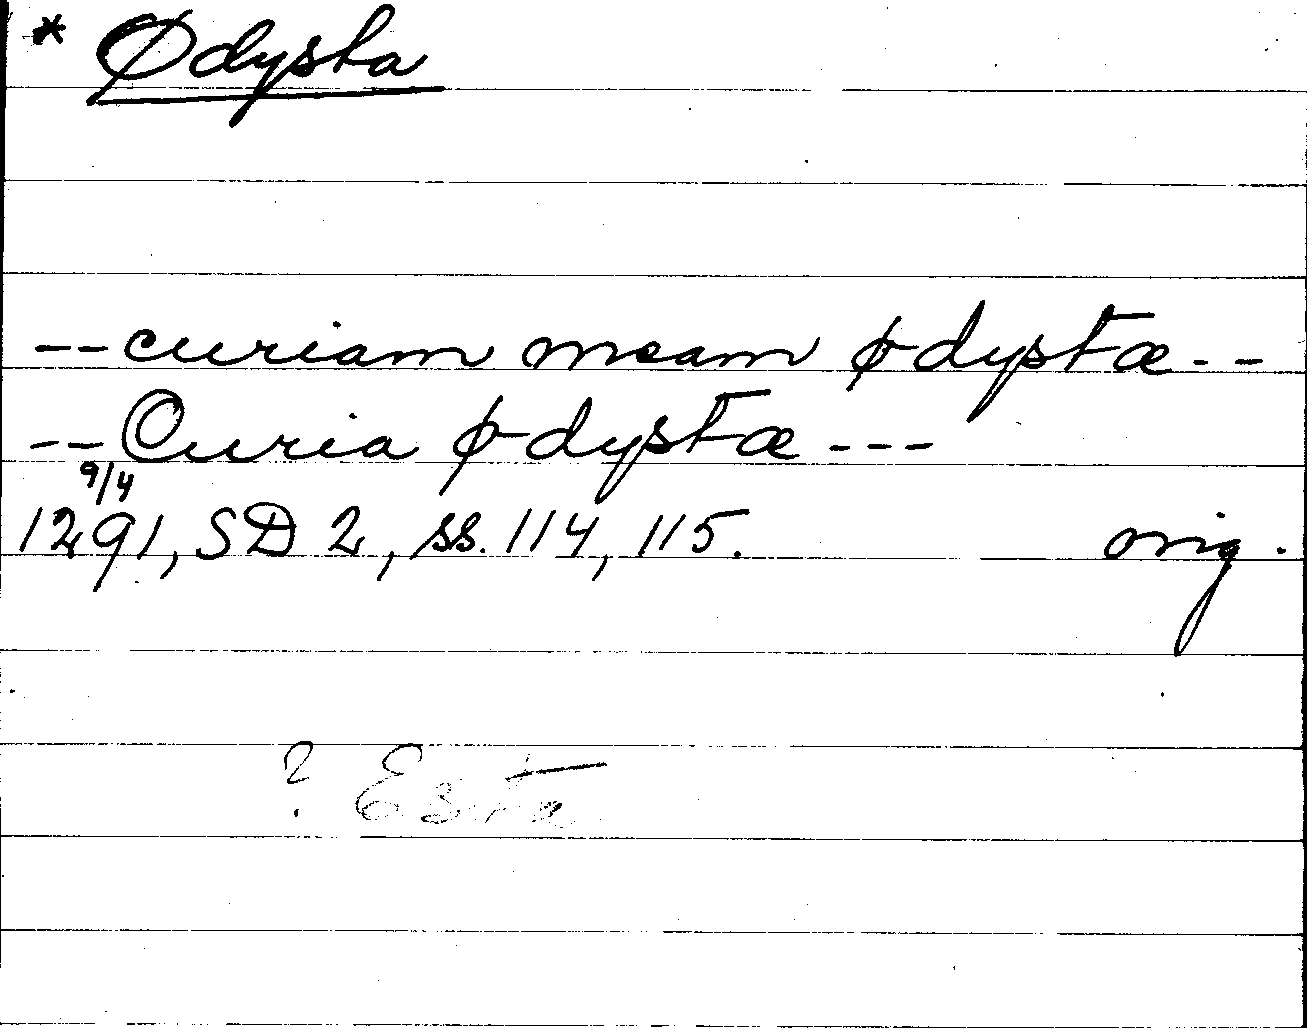 * Ødysta
--curiam meam ødystæ--
--Curia ødystæ---
9/4
1291, SD 2, ss. 114, 115. orig.
? Esta